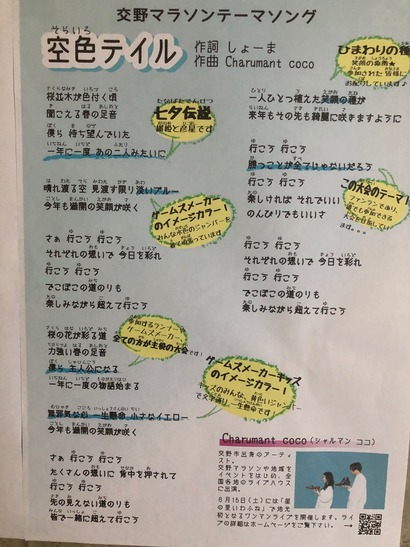 交野マラソンテーマソング
空色テイル
そらいろ
作詞 しょーま
作曲 Charumant coco
桜並木が色付く頃
聞こえる春の足音
僕ら 待ち望んでいた
一年に一度 あの二人みたいに
七夕伝説
織姫と彦星です
晴れ渡る空 見渡す限り淡いブルー
今年も満開の笑顔が咲く
ゲームスメーカー
のイメージカラー！
みんな水色のジャンパーを
着て頑張っています
さぁ 行こう 行こう
それぞれの想いで 今日を彩れ
行こう 行こう
でこぼこの道のりも
楽しみながら超えて行こう
桜の花が彩る道
力強い春の足音
僕ら 主人公になる
一年に一度の物語始まる
参加するランナー
全ての方が主役の大会です！
無邪気な色 一生懸命 小さなイエロー
今年も満開の笑顔が咲く
ゲームスメーカーキッズ
のイメージカラー！
さぁ 行こう 行こう
たくさんの想いに 背中を押されて
行こう 行こう
先の見えない道のりも
皆で一緒に超えて行こう
ひまわりの種
笑顔の象徴★
参加された皆様に
お配りしています♪
一人ひとつ植えた笑顔の種が
来年もその先も綺麗に咲きますように
勝つことが全てじゃないだろう
楽しければ それでいい
のんびりでもいいさ
この大会のテーマ！
さぁ 行こう 行こう
それぞれの想いで 今日を彩れ
行こう 行こう
でこぼこの道のりも
楽しみながら超えて行こう
Charumant coco（シャルマン ココ）
交野市出身のアーティスト。
交野マラソンや地域を
イベントをはじめ、全
国各地のライブハウス
に出演。
6月15日（土）には「星
の里いわふね」で地元
初となるワンマンライブを開催します。ライ
ブの詳細はホームページをご覧下さい。→